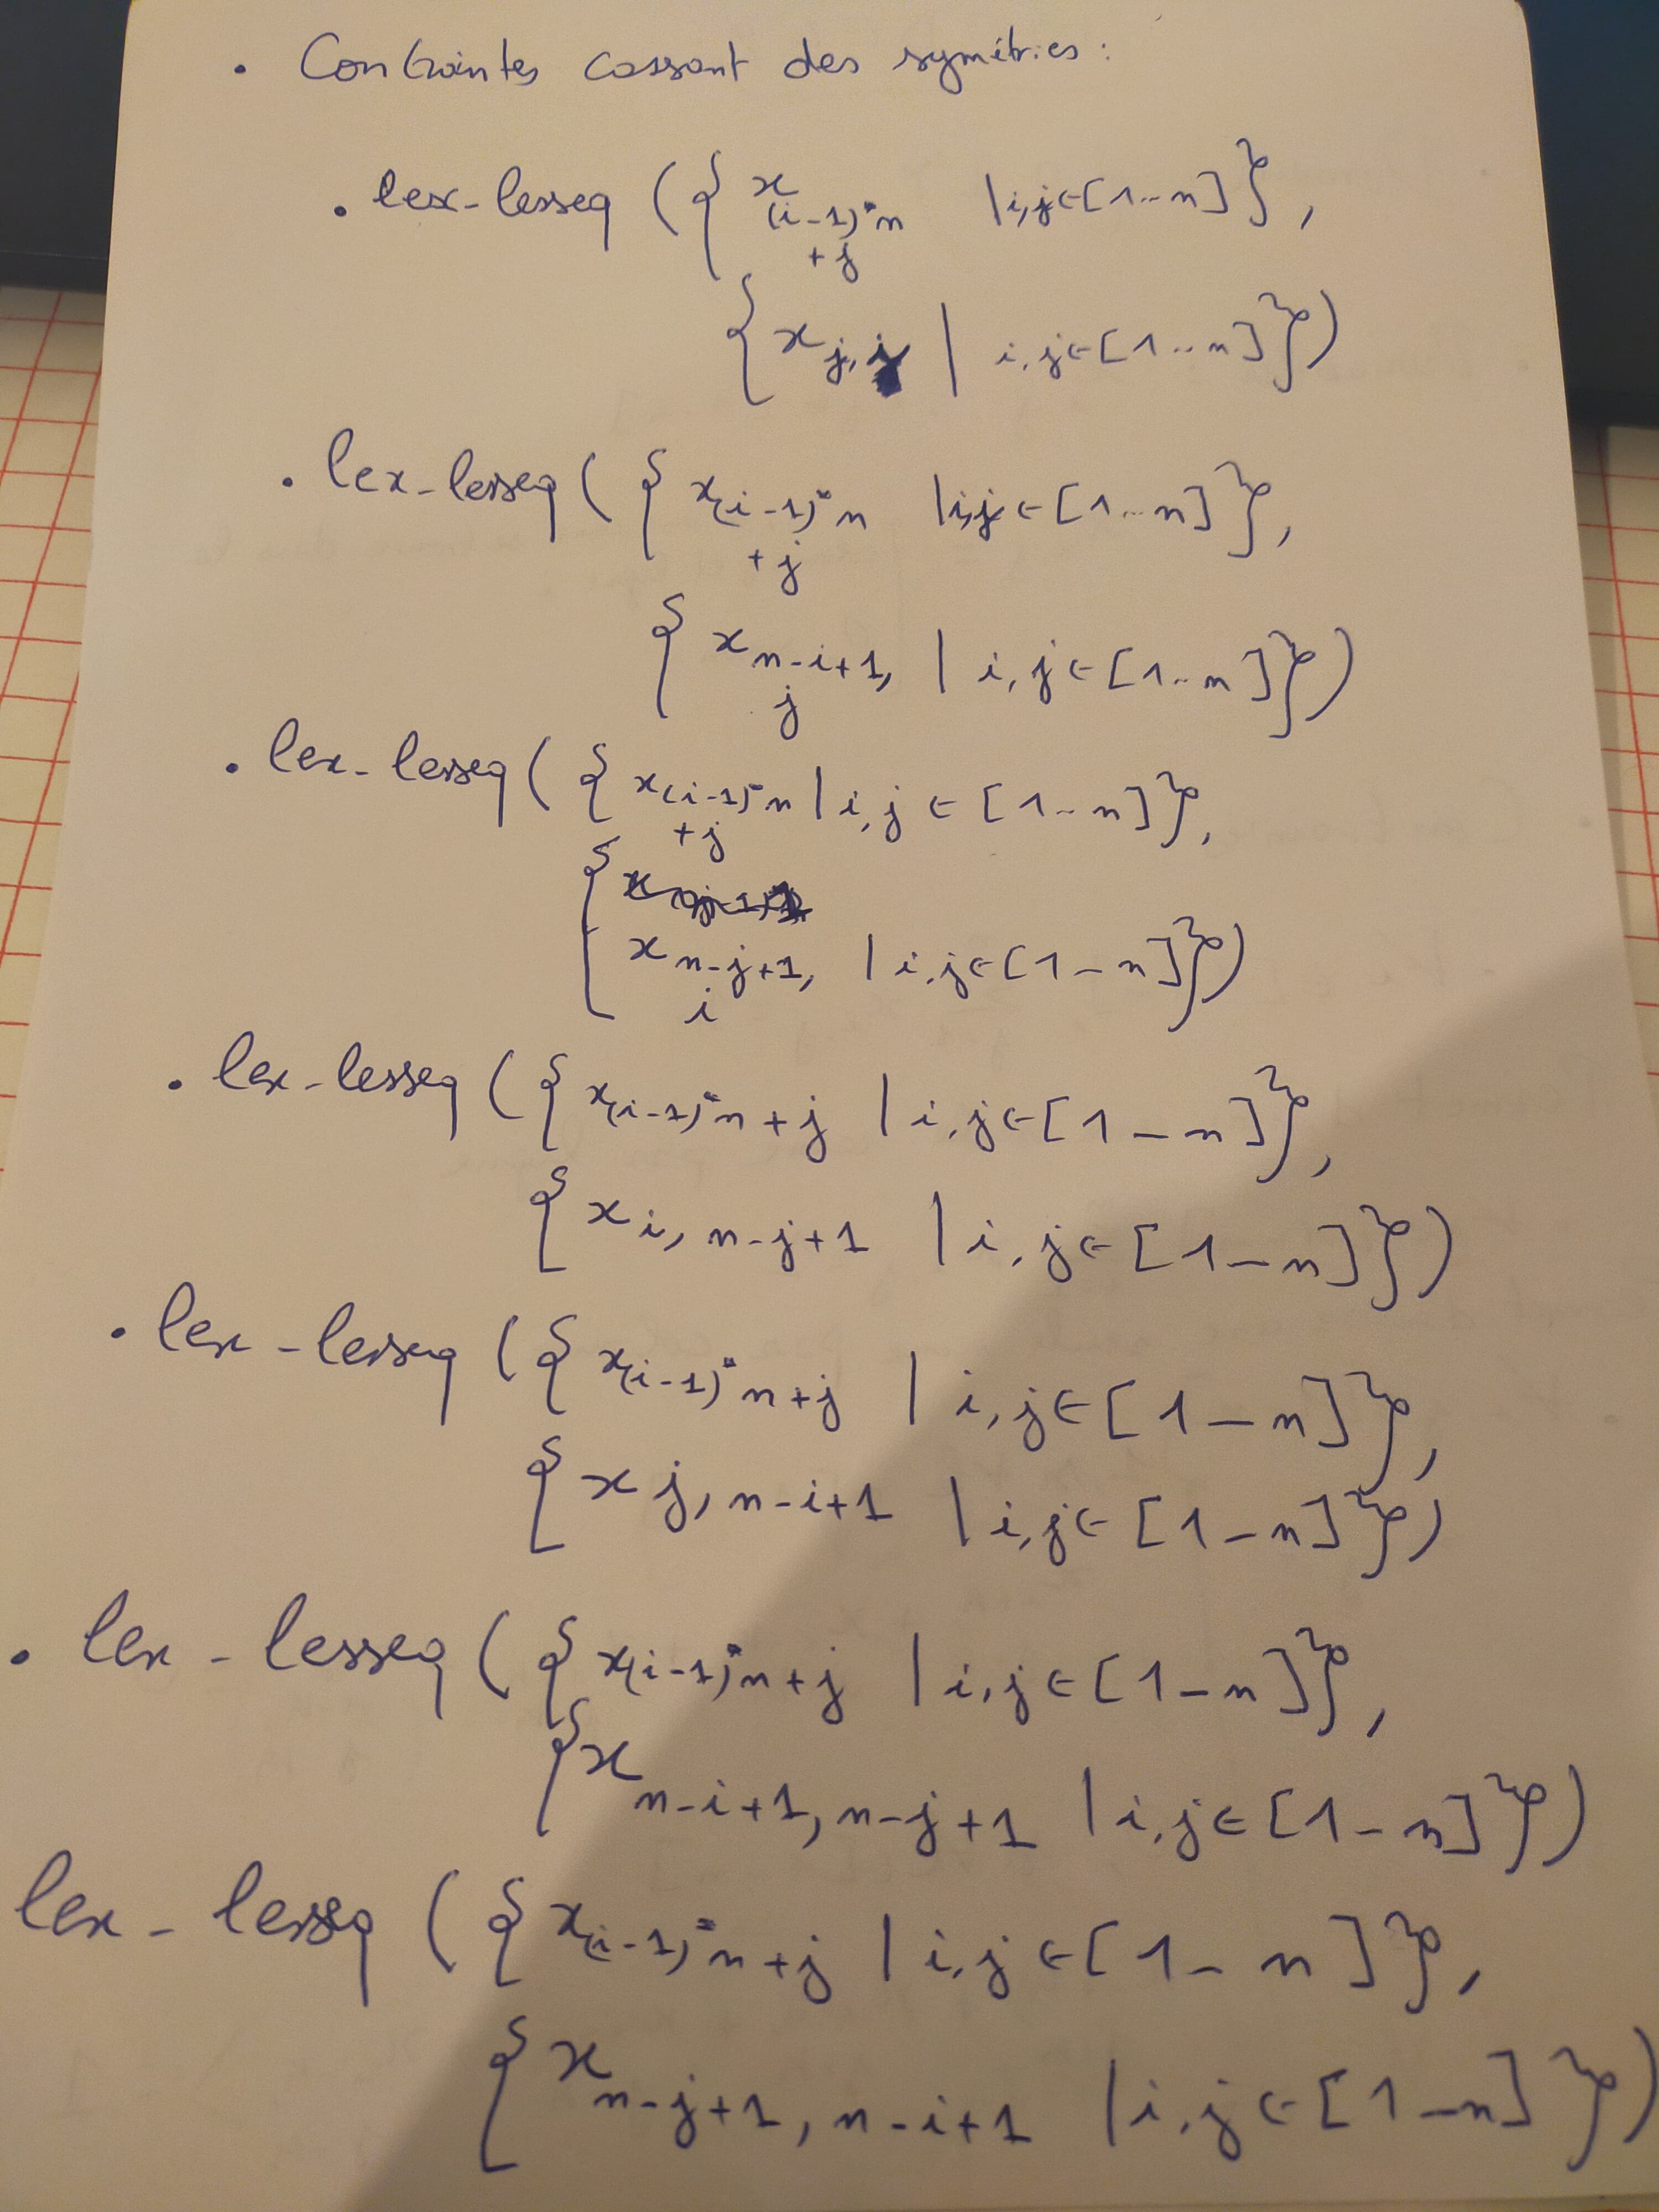 . Contraintes cassant des symétries :
. lex-lesseq ({ x(i-1)*n | i,j ∈ [1..n] },
+j
{ x j, | i,j ∈ [1..n] })
. lex-lesseq ( { x(i-1)*n | i,j ∈ [1...n] },
+j
{ x n-i+1, | i,j ∈ [1..n] })
j
. lex-lesseq ( { x(i-1)*n | i,j ∈ [1..n] },
+j
{ x n-j+1, | i,j ∈ [1-n] })
i
. lex-lesseq ( { x(i-1)*n+j | i,j ∈ [1-n] },
{ x i, n-j+1 | i,j ∈ [1-n] })
. lex-lesseq ( { x(i-1)*n+j | i,j ∈ [1-n] },
{ x j, n-i+1 | i,j ∈ [1-n] })
. lex-lesseq ( { x(i-1)*n+j | i,j ∈ [1-n] },
{ x n-i+1, n-j+1 | i,j ∈ [1-n] })
lex-lesseq ( { x(i-1)*n+j | i,j ∈ [1-n] },
{ x n-j+1, n-i+1 | i,j ∈ [1-n] })